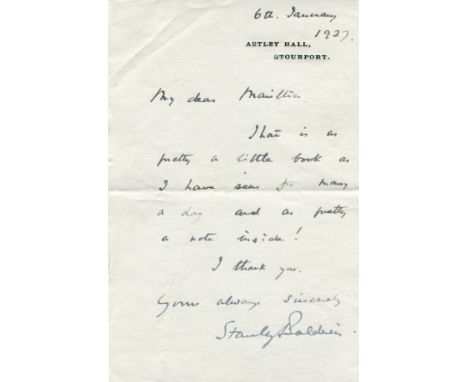 6th. January
1927.
ASTLEY HALL,
STOURPORT.
My dear
That is as
pretty a little book as
I have seen for many
a day and as pretty
a note inside!
I thank you.
Yours always sincerely
Stanley Baldwin.